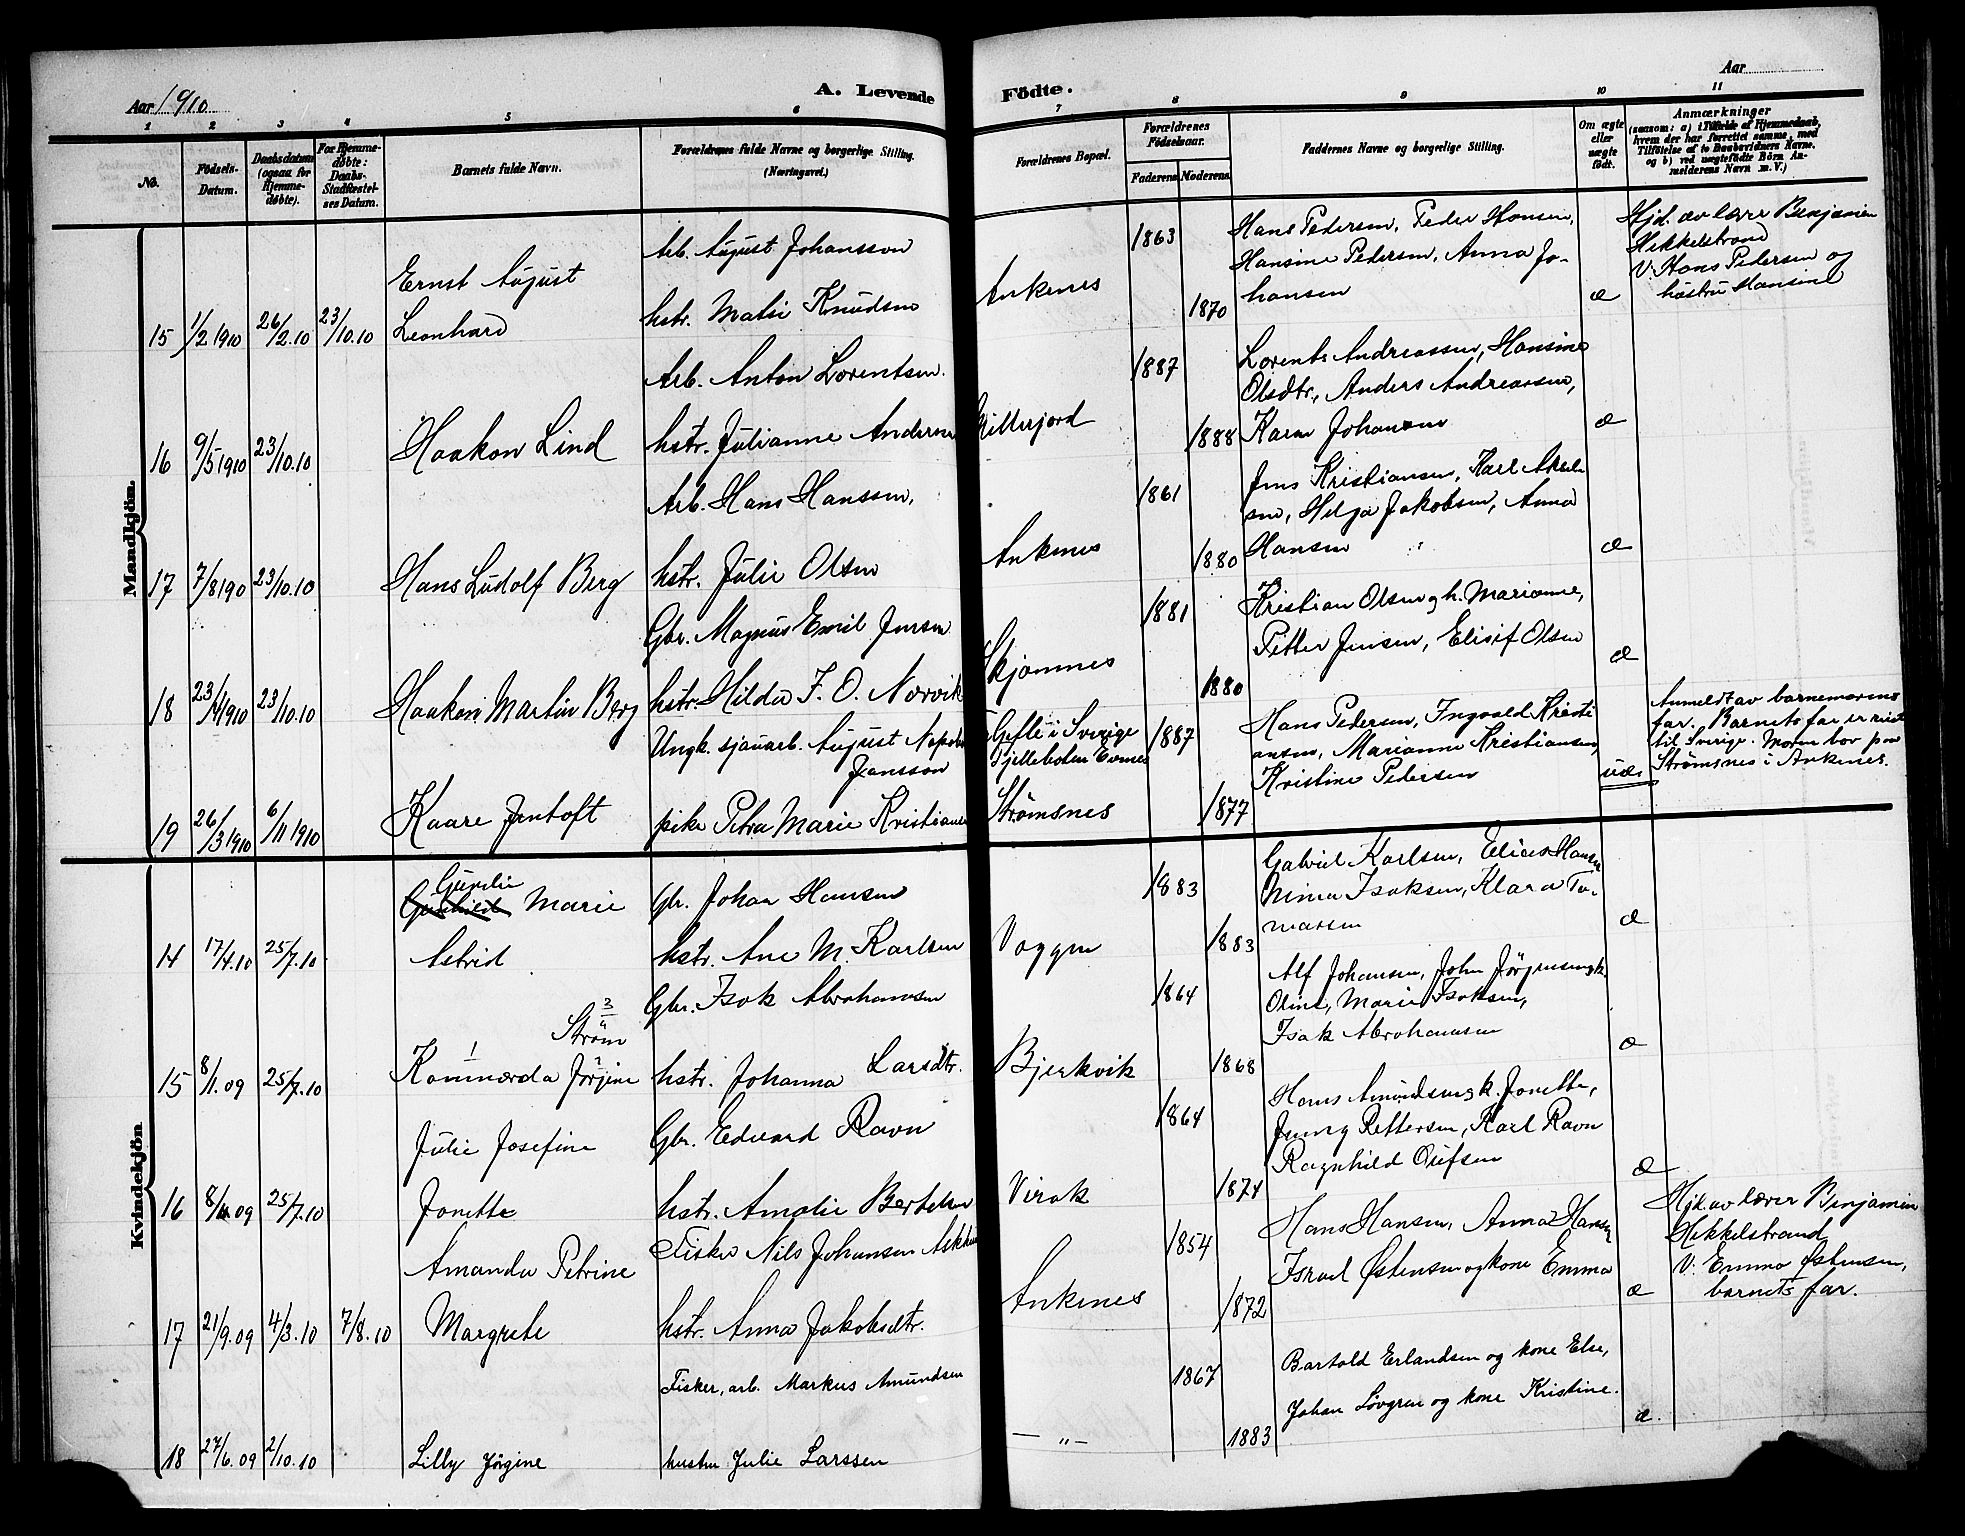 Aar 1910
A. Levende
Födte.
Aar
1 2 3 4 5 6 7 8 9 10 11
No.
Födsels-
Datum.
Daabsdatum
(ogsaa for
Hjemme-
døbte).
For Hjemme-
døbte:
Daabs-
Stadfæstel-
ses Datum.
Barnets fulde Navn.
Forældrenes fulde Navne og borgerlige Stilling.
(Næringsvei.)
Forældrenes Bopæl.
Forældrenes
Födselsaar.
Faderens. Moderens.
Faddernes Navne og borgerlige Stilling.
Om ægte
eller
uægte
født.
Anmærkninger
(saasom: a) i Tilfælde af Hjemmedaab,
hvem der har forrettet samme, med
Tilföielse af to Daabsvidners Navne,
og b) ved uægtefødte Börn An-
melderens Navn m. V.)
Mandkjön.
15 1/2 1910 26/2.10 23/10.10
Ernst August
Leonhard
Arb. August Johansson
hstr. Matsi Knudsen
Ankenes
1863
1870
Hans Pedersen, Peder Hansen,
Hansine Pedersen, Anna Jo-
hansen
æ
Hjd. av lærer Benjamin
Hekkelstrand
V. Hans Pedersen og
hustru Hansine
16 9/5 1910 23/10.10
Haakon Lind
Arb. Anton Lorentsen.
hstr. Julianne Andersen
1887
1888
Lorents Andreassen, Hansine
Olsdtr., Anders Andreassen,
Karen Johansen
æ
17 7/8 190 23/10.10
Hans Ludolf Berg
Arb. Hans Hanssen,
hstr. Julie Olsen
Ankenes
1861
1880
Jens Kristiansen, Karl Aksel-
sen, Helga Jakobsen, Anna
Hansen
æ
18 23/ 1910 23/10.10
Haakon Martin Berg
Gbr. Magnus Emil Jensen
hstr. Hilda F. O. Norvik
Skjomnes
1881
1880
Kristian Olsen og h. Marianne,
Petter Jensen, Elisif Olsen
æ
19 26/3 1910 6/11 1910
Kaare Jentoft
Ungk. sjauarb. August
Jansson
pike Petra Marie Kristiansen
Gefle i Sverige
Strømsnes
1887
1877
Hans Pedersen, Ingvald Kristi
ansen, Marianne Kristiansen,
Kristine Pedersen
uæ
Anmeldt av barnemorens
far. Barnets far er reist
til Sverige. Moren bor paa
Strømsnes i Ankenes.
Kvindekjön
14 17/4.10 25/7.10
Marie
Astrid
Gbr. Johan Hansen
hstr. Ane M. Karlsen
Vaggen
1883
1883
Gabriel Karlsen, Elias Hansen
Mina Isaksen, Klara To-
massen
æ
15 8/1.09 25/7.10
3
Strøm
1 2
Jørgine
Gbr. Isak Abrahamsen
hstr. Johanna Larsdtr.
Bjerkvik
1864
1868
Alf Johansen, John Jørgensen og k.
Oline, Marie Isaksen,
Isak Abrahamsen
æ
16 8/ 09 25/7.10
Julie Josefine
Jonette
Gbr. Edvard Ravn
hstr. Amalie Bertelsen
Virak
1864
1874
Hans Amundsen og k. Jonette,
Jenny Pettersen, Karl Ravn
Ragnhild Olufsen
æ
17 21/9.09 4/3.10 7/8.10
Amanda Petrine
Margrete
Fisker Nils Johansen
hstr. Anna Jakobsdtr.
Ankenes
1854
1872
Hans Hansen, Anna Hansen
Israel Østensen og kone Emma
æ
Hjd. av lærer Benjamin
Hekkelstrand
V. Emma Østensen,
barnets far.
18 27/6.09 2/10.10
Lilly Jørgine
Fisker, arb. Markus Amundsen
hustru Julie Larssen
— „ —
1867
1883
Bartold Erlandsen og kone Else,
Johan Løvgren og kone Kristine.
æ.